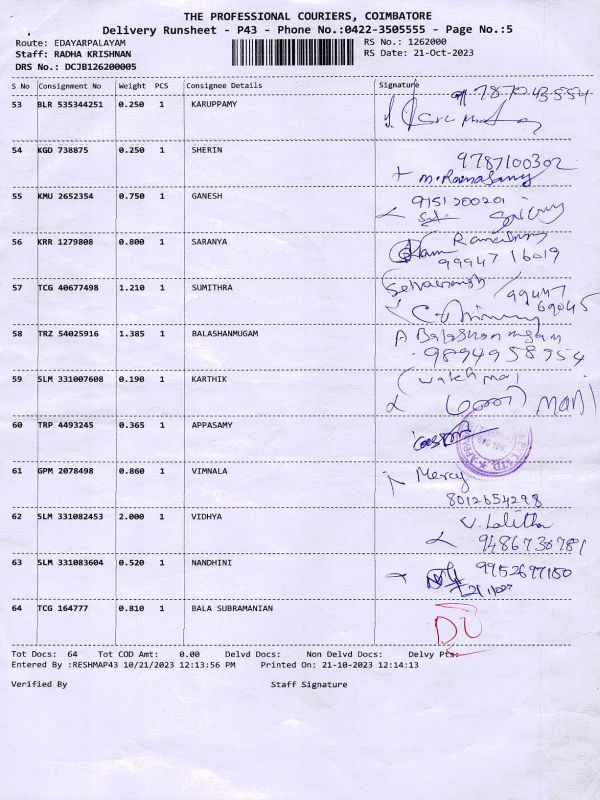 THE PROFESSIONAL COURIERS, COIMBATORE
Delivery Runsheet - P43 - Phone No.:0422-3505555 - Page No.:5
Route: EDAYARPALAYAM RS No.: 1262000
Staff: RADHA KRISHNAN RS Date: 21-Oct-2023
DRS No.: DCJB126200005
S No Consignment No Weight PCS Consignee Details Signature
53 BLR 535344251 0.250 1 KARUPPAMY
54 KGD 738875 0.250 1 SHERIN 9787100302
55 KMU 2652354 0.750 1 GANESH 9151200201
56 KRR 1279808 0.800 1 SARANYA
9994716019
57 TCG 40677498 1.210 1 SUMITHRA 99447
69045
58 TRZ 54025916 1.385 1 BALASHANMUGAM A Balashanmugam
9894958954
59 SLM 331007608 0.190 1 KARTHIK watch man
MANI
60 TRP 4493245 0.365 1 APPASAMY
61 GPM 2078498 0.860 1 VIMNALA Mercy
8012654298
62 SLM 331082453 2.000 1 VIDHYA V. Lalitha
9486730781
63 SLM 331083604 0.520 1 NANDHINI 9952697150
64 TCG 164777 0.810 1 BALA SUBRAMANIAN
Tot Docs: 64 Tot COD Amt: 0.00 Delvd Docs: Non Delvd Docs: Delvy Pts:
Entered By :RESHMAP43 10/21/2023 12:13:56 PM Printed On: 21-10-2023 12:14:13
Verified By Staff Signature